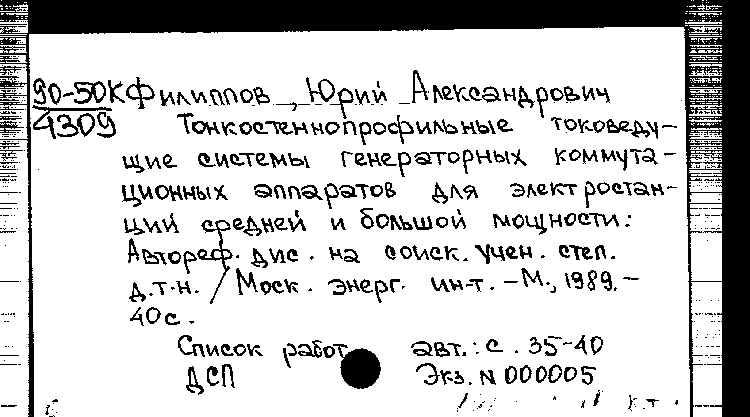 90-50К Филиппов, Юрий Александрович
4309 Тонкостеннопрофильные токоведу-
щие системы генераторных коммута-
ционных аппаратов для электростан-
ций средней и большой мощности:
Автореф. дис. на соиск. учен. степ.
д.т.н. / Моск. энерг. ин-т. - М., 1989. -
40с.
Список работ авт.: с. 35-40
ДСП Экз. N 000005